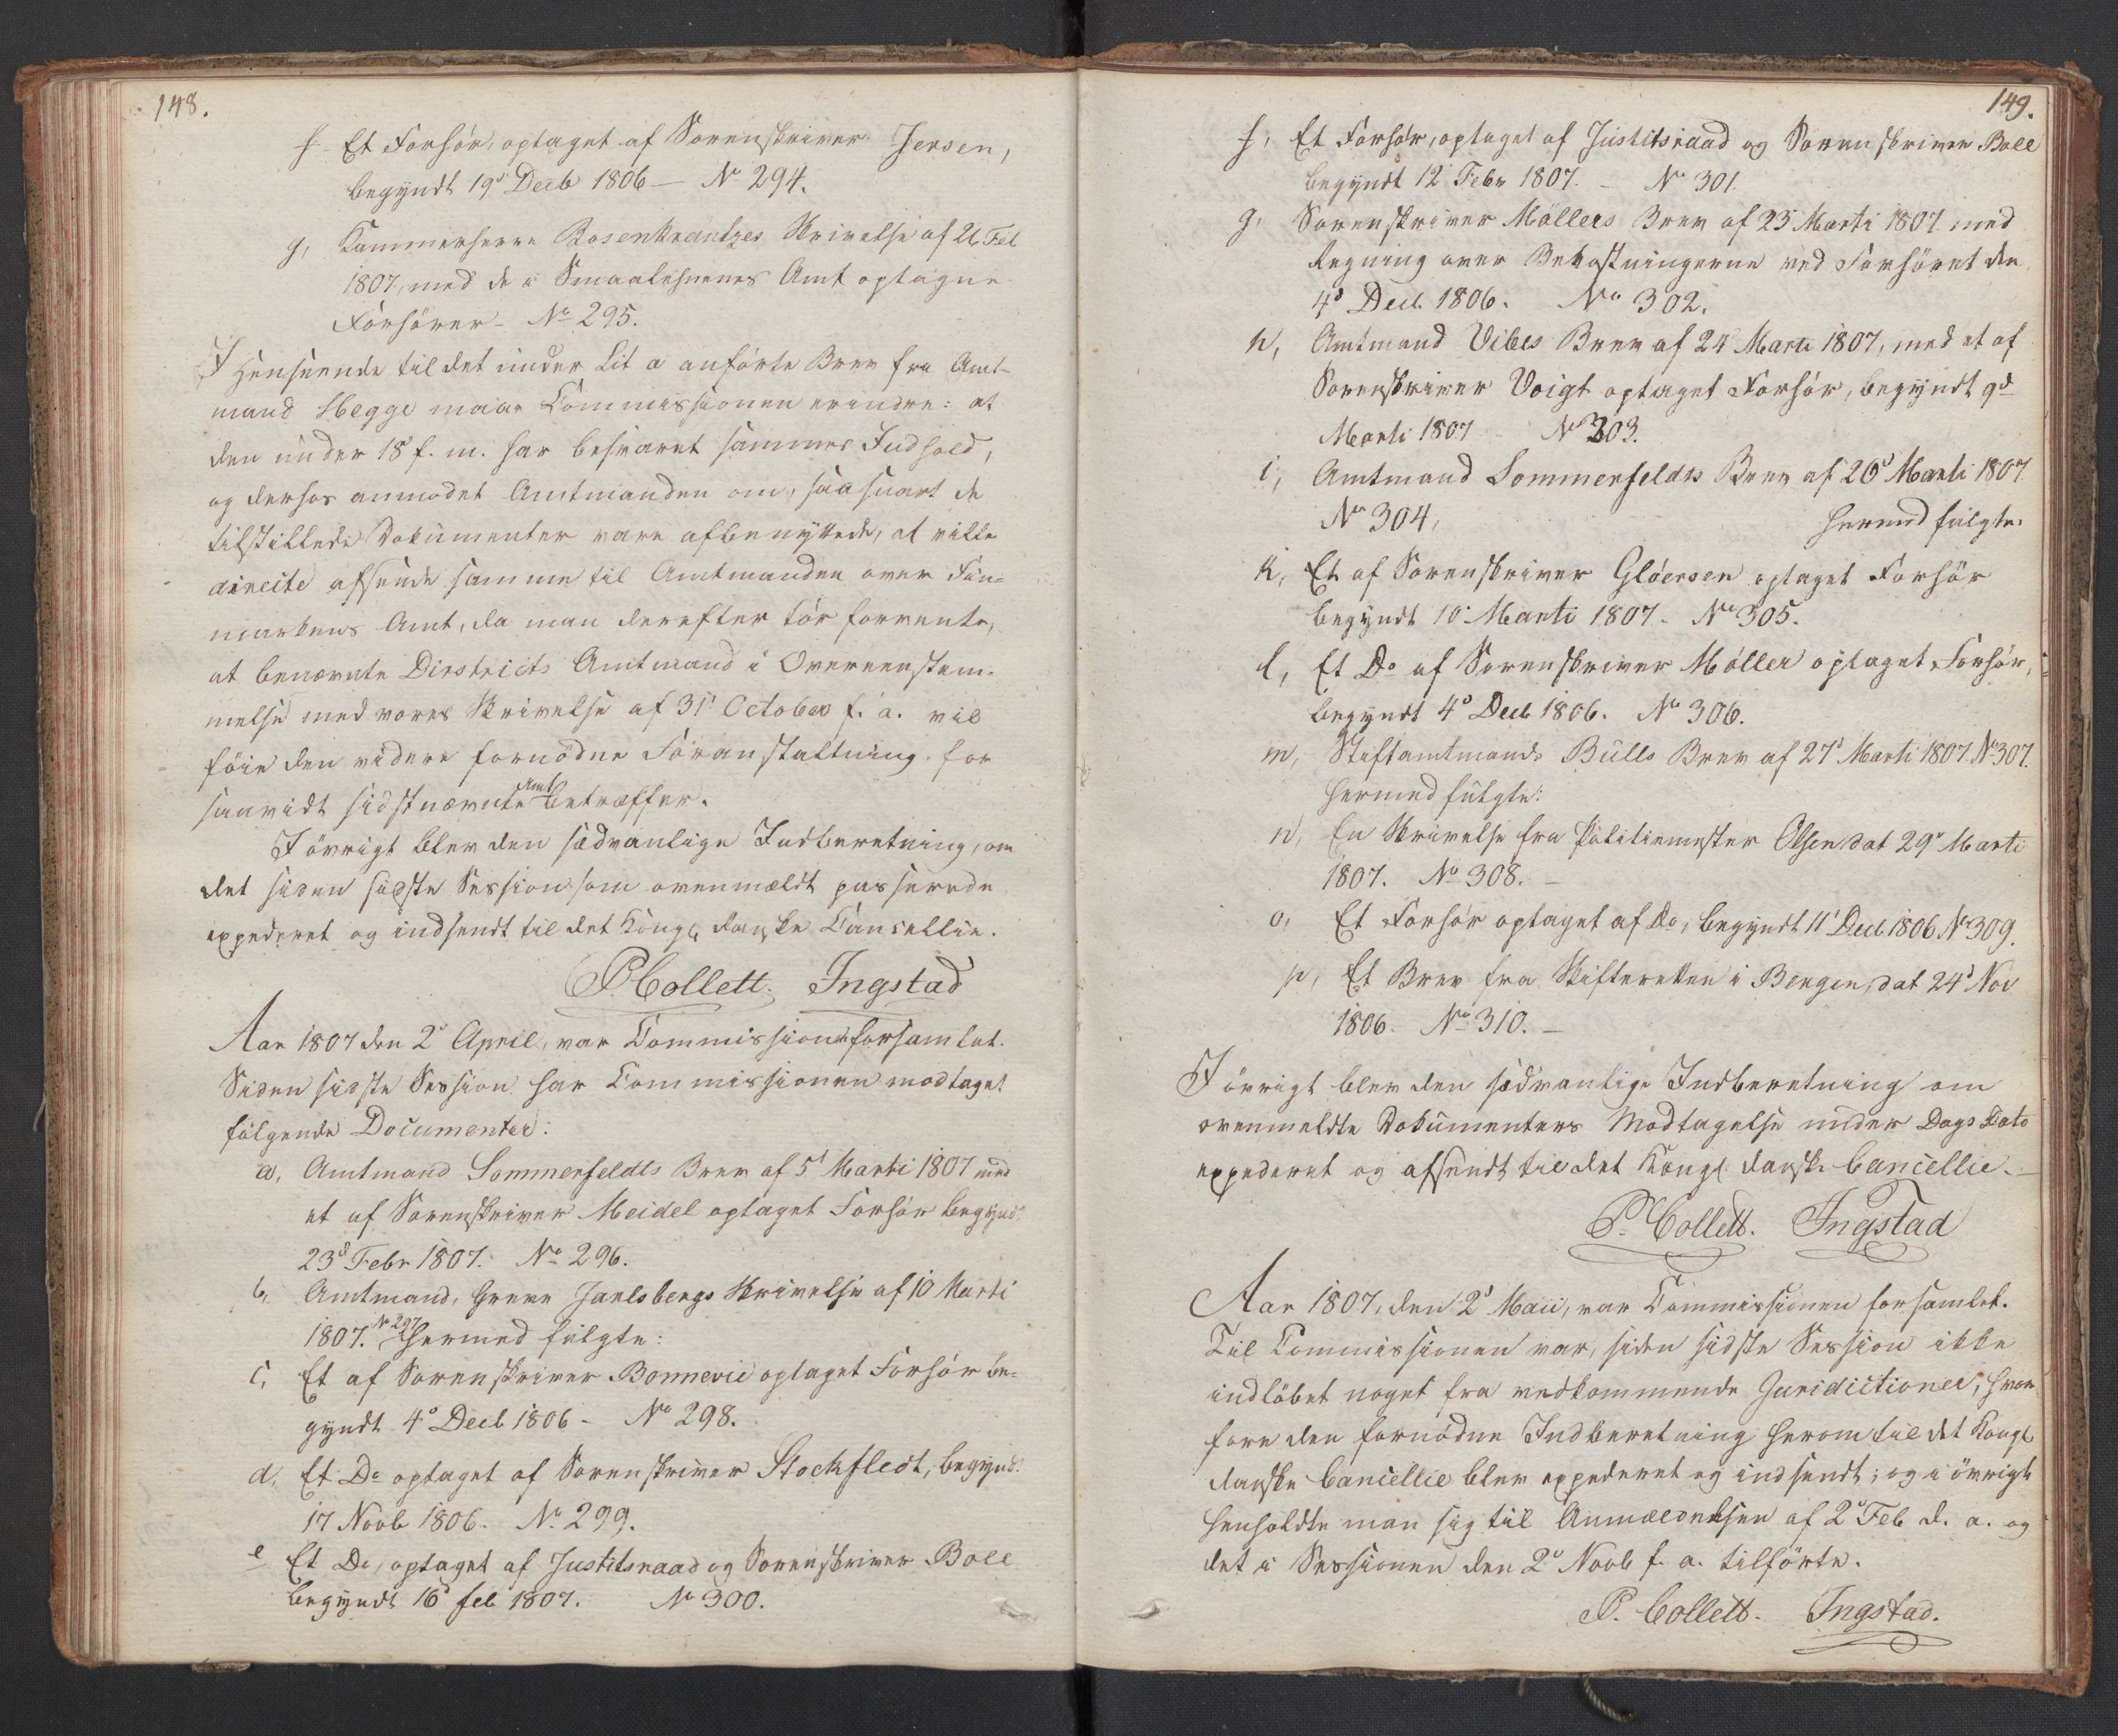 148.
f. Et Forhör, optaget af Sorenskriver Jersen,
begyndt 19d Decb 1806 — No 294.
g, Kammerherre Rosenkrantzes Skrivelse af 21 Feb
1807, med de i Smaalehnenes Amt optagne
Forhörer - No 295.
I Henseende til det under Lit a anförte Brev fra Amt-
mand Hegge maae Commissionen erindre: at
den under 18d f. m. har besvaret sammes Indhold,
og derhos anmodet Amtmanden om, saasnart de
tilstillede Dokumenter vare afbenyttede, at ville
directe afsende samme til Amtmanden over Fin-
markens Amt, da man derefter tör forvente,
at benævnte Districts Amtmand i Overeenstem-
melse med vores Skrivelse af 31d October f. a. vil
föie den videre fornödne Foranstaltning for
saavidt sidstnævnte Amt betræffer.
I övrigt blev den sædvanlige Indberetning, om
det siden sidste Session som ovenmældt passerede
expederet og indsendt til det Kongl danske Cancellie.
P. Collett. Ingstad
Aar 1807 den 2d April, var Commissionen forsamlet.
Siden sidste Session har Commissionen modtaget
følgende Documenter:
a, Amtmand Sommerfeldts Brev af 5d Marti 1807 med
et af Sorenskriver Meidel optaget Forhör begyndt
23d Febr 1807. No 296.
b, Amtmand, Greve Jarlsbergs Skrivelse af 10 Marti
1807. No 297 Hermed fulgte:
c, Et af Sorenskriver Bonnevie optaget Forhör be-
gyndt 4d Decb 1806 - No 298.
d, Et Do optaget af Sorenskriver Stockfledt, begyndt
17 Novb 1806. No 299.
e Et Do, optaget af Justitsraad og Sorenskriver Boll
begyndt 16d feb 1807. No 300.
149.
f, Et Forhör, optaget af Justitsraad og Sorenskriver Boll
begyndt 12 Febr 1807. - No 301.
g, Sorenskriver Möllers Brev af 23 Marti 1807 med
Regning over Bekostningerne ved Forhöret den
4d Decb. 1806. No 302.
h, Amtmand Vibes Brev af 24 Marti 1807, med et af
Sorenskriver Voigt optaget Forhör, begyndt 9d
Marti 1807 - No 303.
i, Amtmand Sommerfeldts Brev af 26d Marti 1807
No 304, Hermed fulgte:
k, Et af Sorenskriver Glöersen optaget Forhör
begyndt 10d Marti 1807 - No 305.
l, Et Do af Sorenskriver Möller optaget Forhör,
begyndt 4d Decb 1806. No 306.
m, Stiftamtmands Bulls Brev af 27d Marti 1807. No 307.
Hermed fulgte:
n, En Skrivelse fra Politiemester Olsen dat 29d Marti
1807. No 308. —
o, Et Forhör optaget af Do, begyndt 11d Decb 1806 No 309.
p, Et Brev fra Skifteretten i Bergen, dat 24d Nov
1806. No 310. —
I övrigt blev den sædvanlige Indberetning om
ovenmeldte Dokumenters Modtagelse under Dags Dato
expederet og afsendt til det Kongl danske Cancellie. —
P. Collett. Ingstad
Aar 1807, den 2d Maii, var Commissionen forsamlet.
Til Commissionen var, siden sidste Session ikke
indlöbet noget fra vedkommende Juridictioner, hvor-
fore den fornödne Indberetning herom til det Kongl
danske Cancellie blev expederet og indsendt; og i övrigt
henholdte man sig til Anmældelsen af 2d Feb d. a. og
det i Sessionen den 2d Novb f. a. tilförte.
P. Collett. Ingstad.